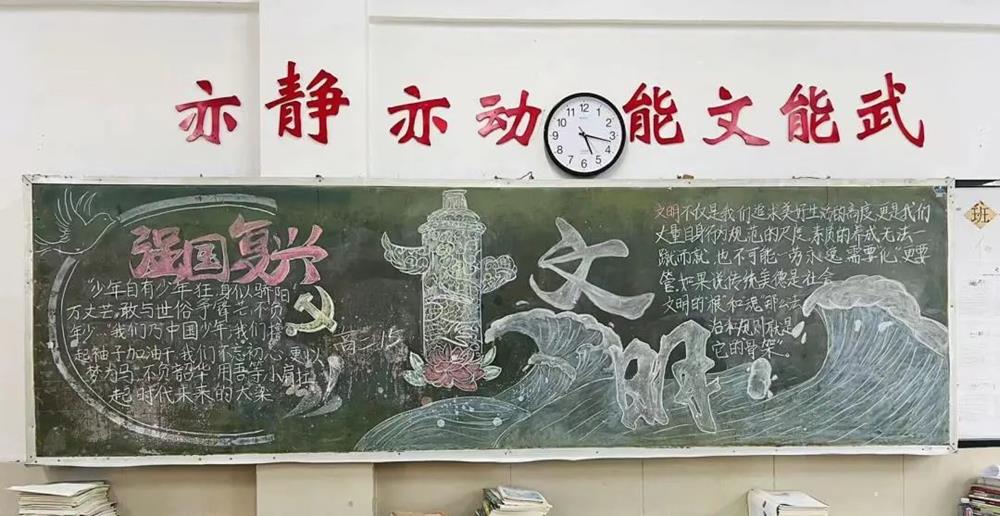 亦静 亦动 能文能武
12 1 2 3 4 5 6 7 8 9 10 11
班
强国复兴
"少年自有少年狂,身似骄阳
万丈芒,敢与世俗争锋芒,不负
年少。"我们乃中国少年,我们撸
起袖子加油干,我们不忘初心,更以
梦为马,不负韶华,用吾等小肩扛
起时代未来的大梁
高二.15
文明
文明不仅是我们追求美好生活的高度,更是我们
丈量自身行为规范的尺度,素质的养成无法一
蹴而就,也不可能一劳永逸,需要化,更要
管,如果说传统美德是社会
文明的"根"和魂,那么法
治和规则就是
它的"骨架"。